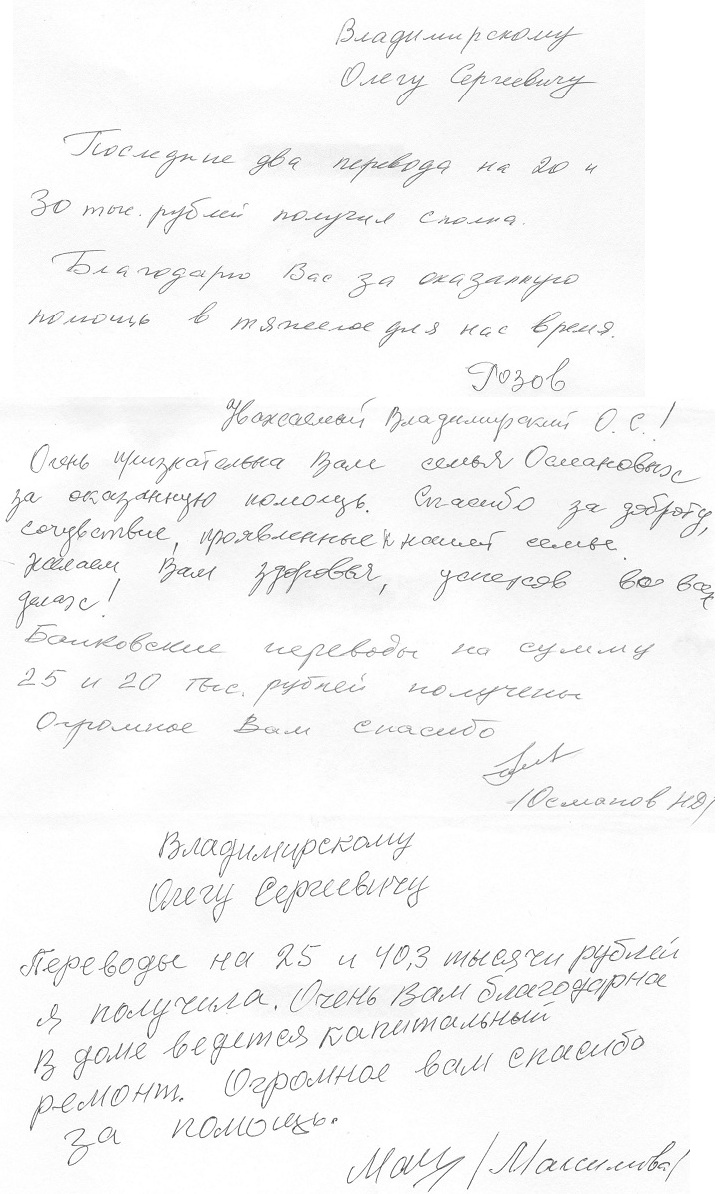 Владимирскому
Олегу Сергеевичу
Последние два перевода на 20 и
30 тыс. рублей получил сполна.
Благодарю Вас за оказанную
помощь в тяжелое для нас время.
Розов
Уважаемый Владимирский О. С.!
Очень признательна Вам семья Османовых
за оказанную помощь. Спасибо за доброту,
сочувствие, проявленные к нашей семье.
Желаем Вам здоровья, успехов во всех
делах!
Банковские переводы на сумму
25 и 20 тыс. рублей получены
Огромное Вам спасибо
/Османов НД/
Владимирскому
Олегу Сергеевичу
Переводы на 25 и 40,3 тысячи рублей
я получила. Очень Вам благодарна
В доме ведется капитальный
ремонт. Огромное вам спасибо
за помощь.
/Максимова/